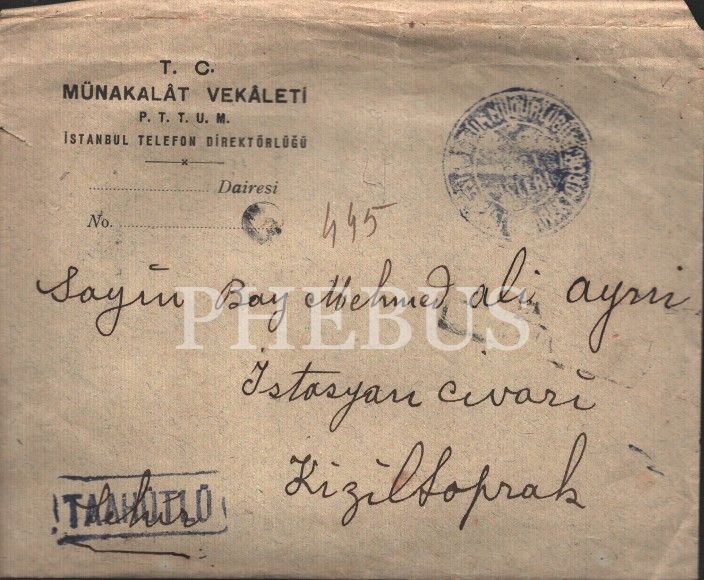 T. C.
MÜNAKALÂT VEKÂLETİ
P. T. T. U. M.
İSTANBUL TELEFON DİREKTÖRLÜĞÜ
Dairesi
No.
445
Sayın Bay Mehmed Ali Ayni
İstasyon civarı
Kızıltoprak
TAAHÜTLÜ
Şehir
PHEBUS